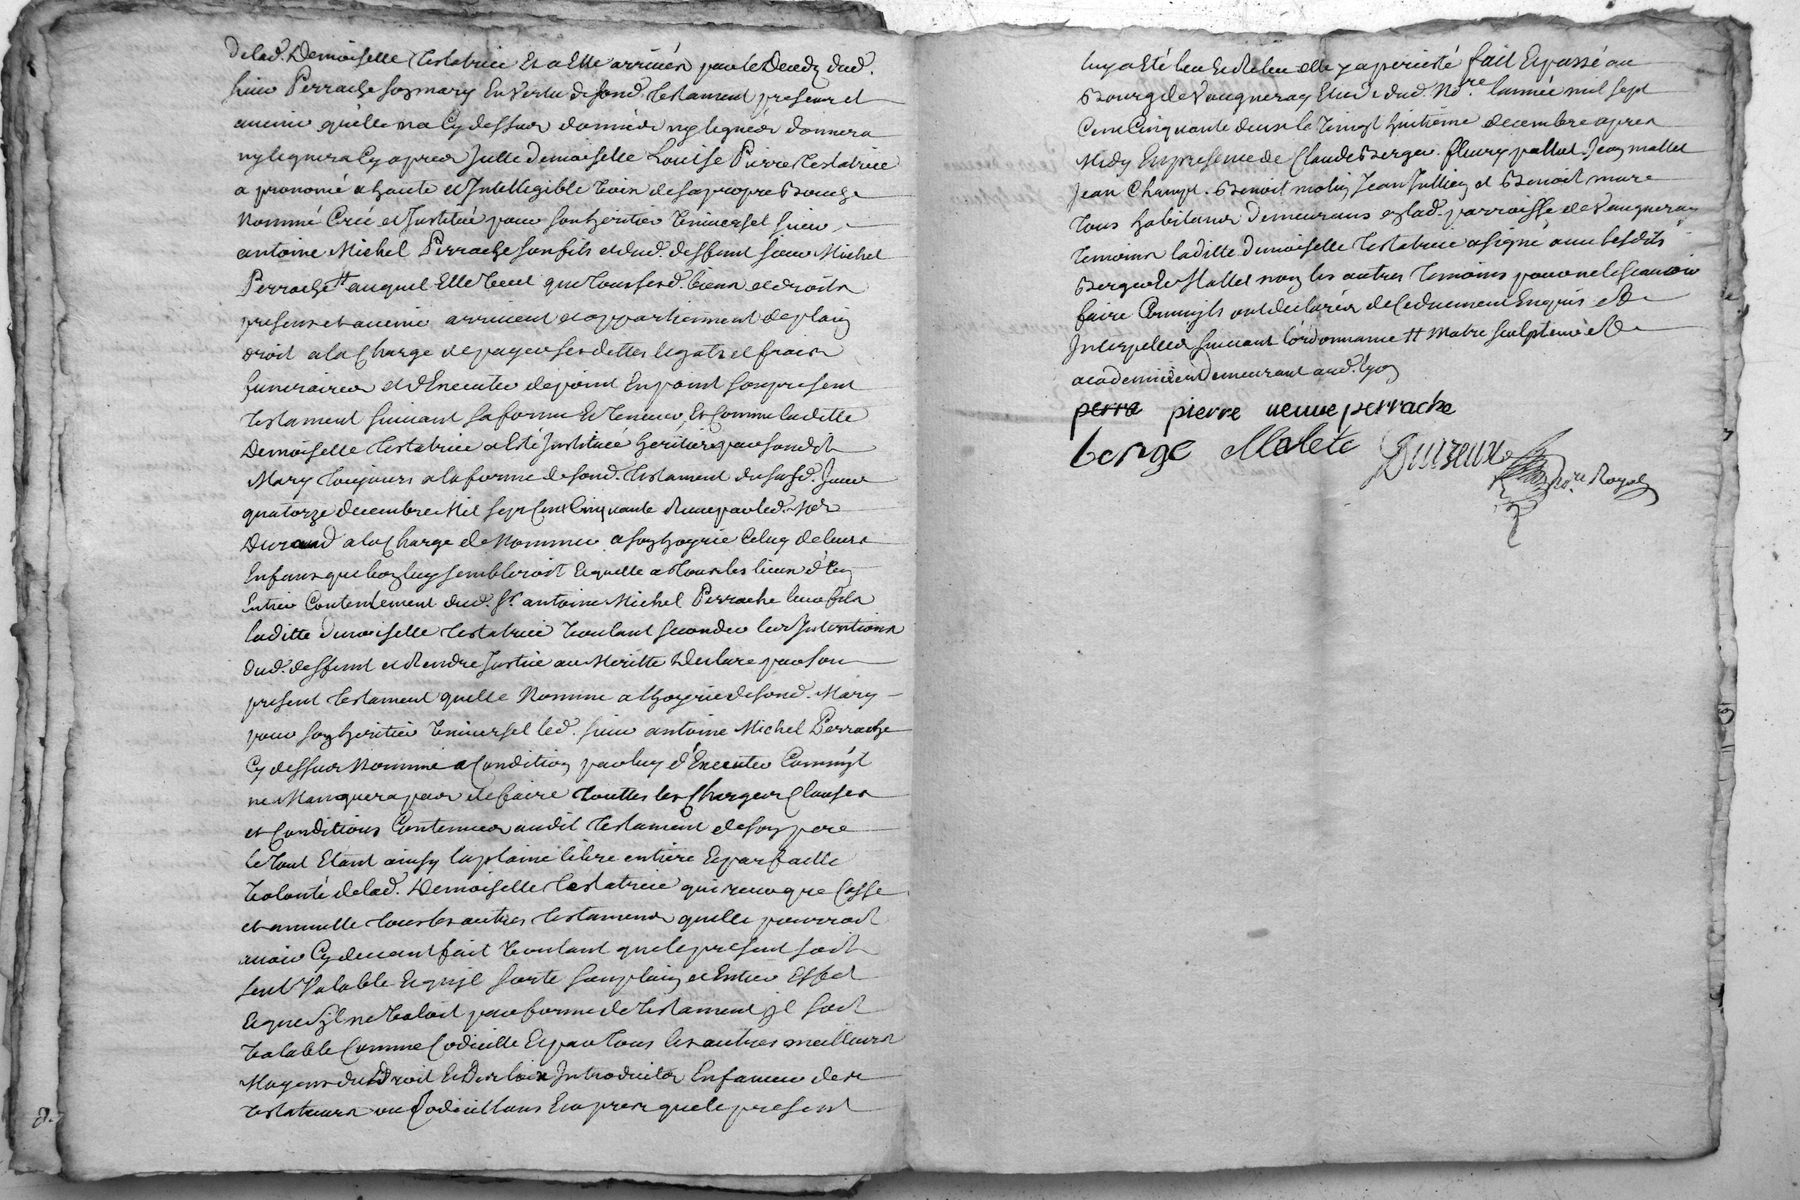 de lad. Demoiselle testatrice Et a Elle arrivés par le Deceds dud.
sieur Perrache son mary En vertu de sond. testament present et
avenir qu'elle n'a Cy dessus donnés ny legués donnera
ny leguera Cy apres Jcelle demoiselle Louise Pierre testatrice
a prononcé a haute et Jntelligible voix de sa propre Bouche
Nommé Créé et Jnstitué pour son heritier universel sieur
antoine Michel Perrache son fils et dud. deffunt sieur Michel
Perrache # auquel Elle veut que tous sesd. biens et droits
presens et avenir arrivent et appartiennent de plain
droit a la Charge de payer ses dettes legats et frais
funeraires et d'Executer de point En point son present
testament suivant sa forme Et teneur, Et Comme laditte
Demoiselle testatrice a Eté Jnstituée heritiere par sondit
Mary toujours a la forme de sond. testament du susd. Jour
quatorze decembre Mil sept Cent Cinquante reçu par led. Me
Durand a la Charge de Nommer a son hoyrie Celuy de leurs
Enfans que bon luy sembleroit Et quelle a tous les lieux d'Etre
Entier Contentement dud. Sr. antoine Michel Perrache leur fils
laditte demoiselle testatrice voulant seconder les Jntentions
dud. deffunt et rendre Justice au Meritte Declare par son
present testament quelle Nomme a lhoyrie de sond. Mary
pour son heritier universel led. sieur antoine Michel Perrache
Cy dessus Nommé a Condition par luy d'Executer Comm'jl
ne Manquera pas de faire touttes les Charges Clauses
et Conditions Contenues audit testament de son pere
le tout Etant ainsy la plaine libre entiere Et parfaitte
volonté de lad. Demoiselle testatrice qui revoque Casse
et annulle tous les autres testamens quelle pourroit
avoir Cy devant fait voulant que le present soit
seul Valable Et qu'jl sorte son plain et Entier Effet
Et que s'jl ne valoit par forme de testament jl soit
valable Comme Codicille Et par tous les autres meilleurs
Moyens du Droit Et Des loix Jntroduites En faveur des
testateurs ou Codicillans Et apres que le present
luy a Eté leu Et releu elle y a persisté fait Et passé au
Bourg de Vaugneray Etude dud. Nore. lannée mil sept
Cent Cinquante deux le vingt huitieme decembre apres
Midy En presence de Claude Berger. fleury pallut Jean mallet
Jean Champt. Benoit molin Jean Jullien et Benoit mure
tous habitans demeurans en lad. parroisse de Vaugneray
temoins laditte demoiselle testatrice a signé avec lesdits
Berger Et Mallet non les autres temoins pour ne le scavoir
faire Comm'jls ont declarés de Ce duement Enquis Et
Jnterpelles suivant l'ordonnance # Maitre sculpteur Et
academicien demeurant aud. lyon
perra pierre veuve perrache
berge Malete Duizeux
No.re Royal